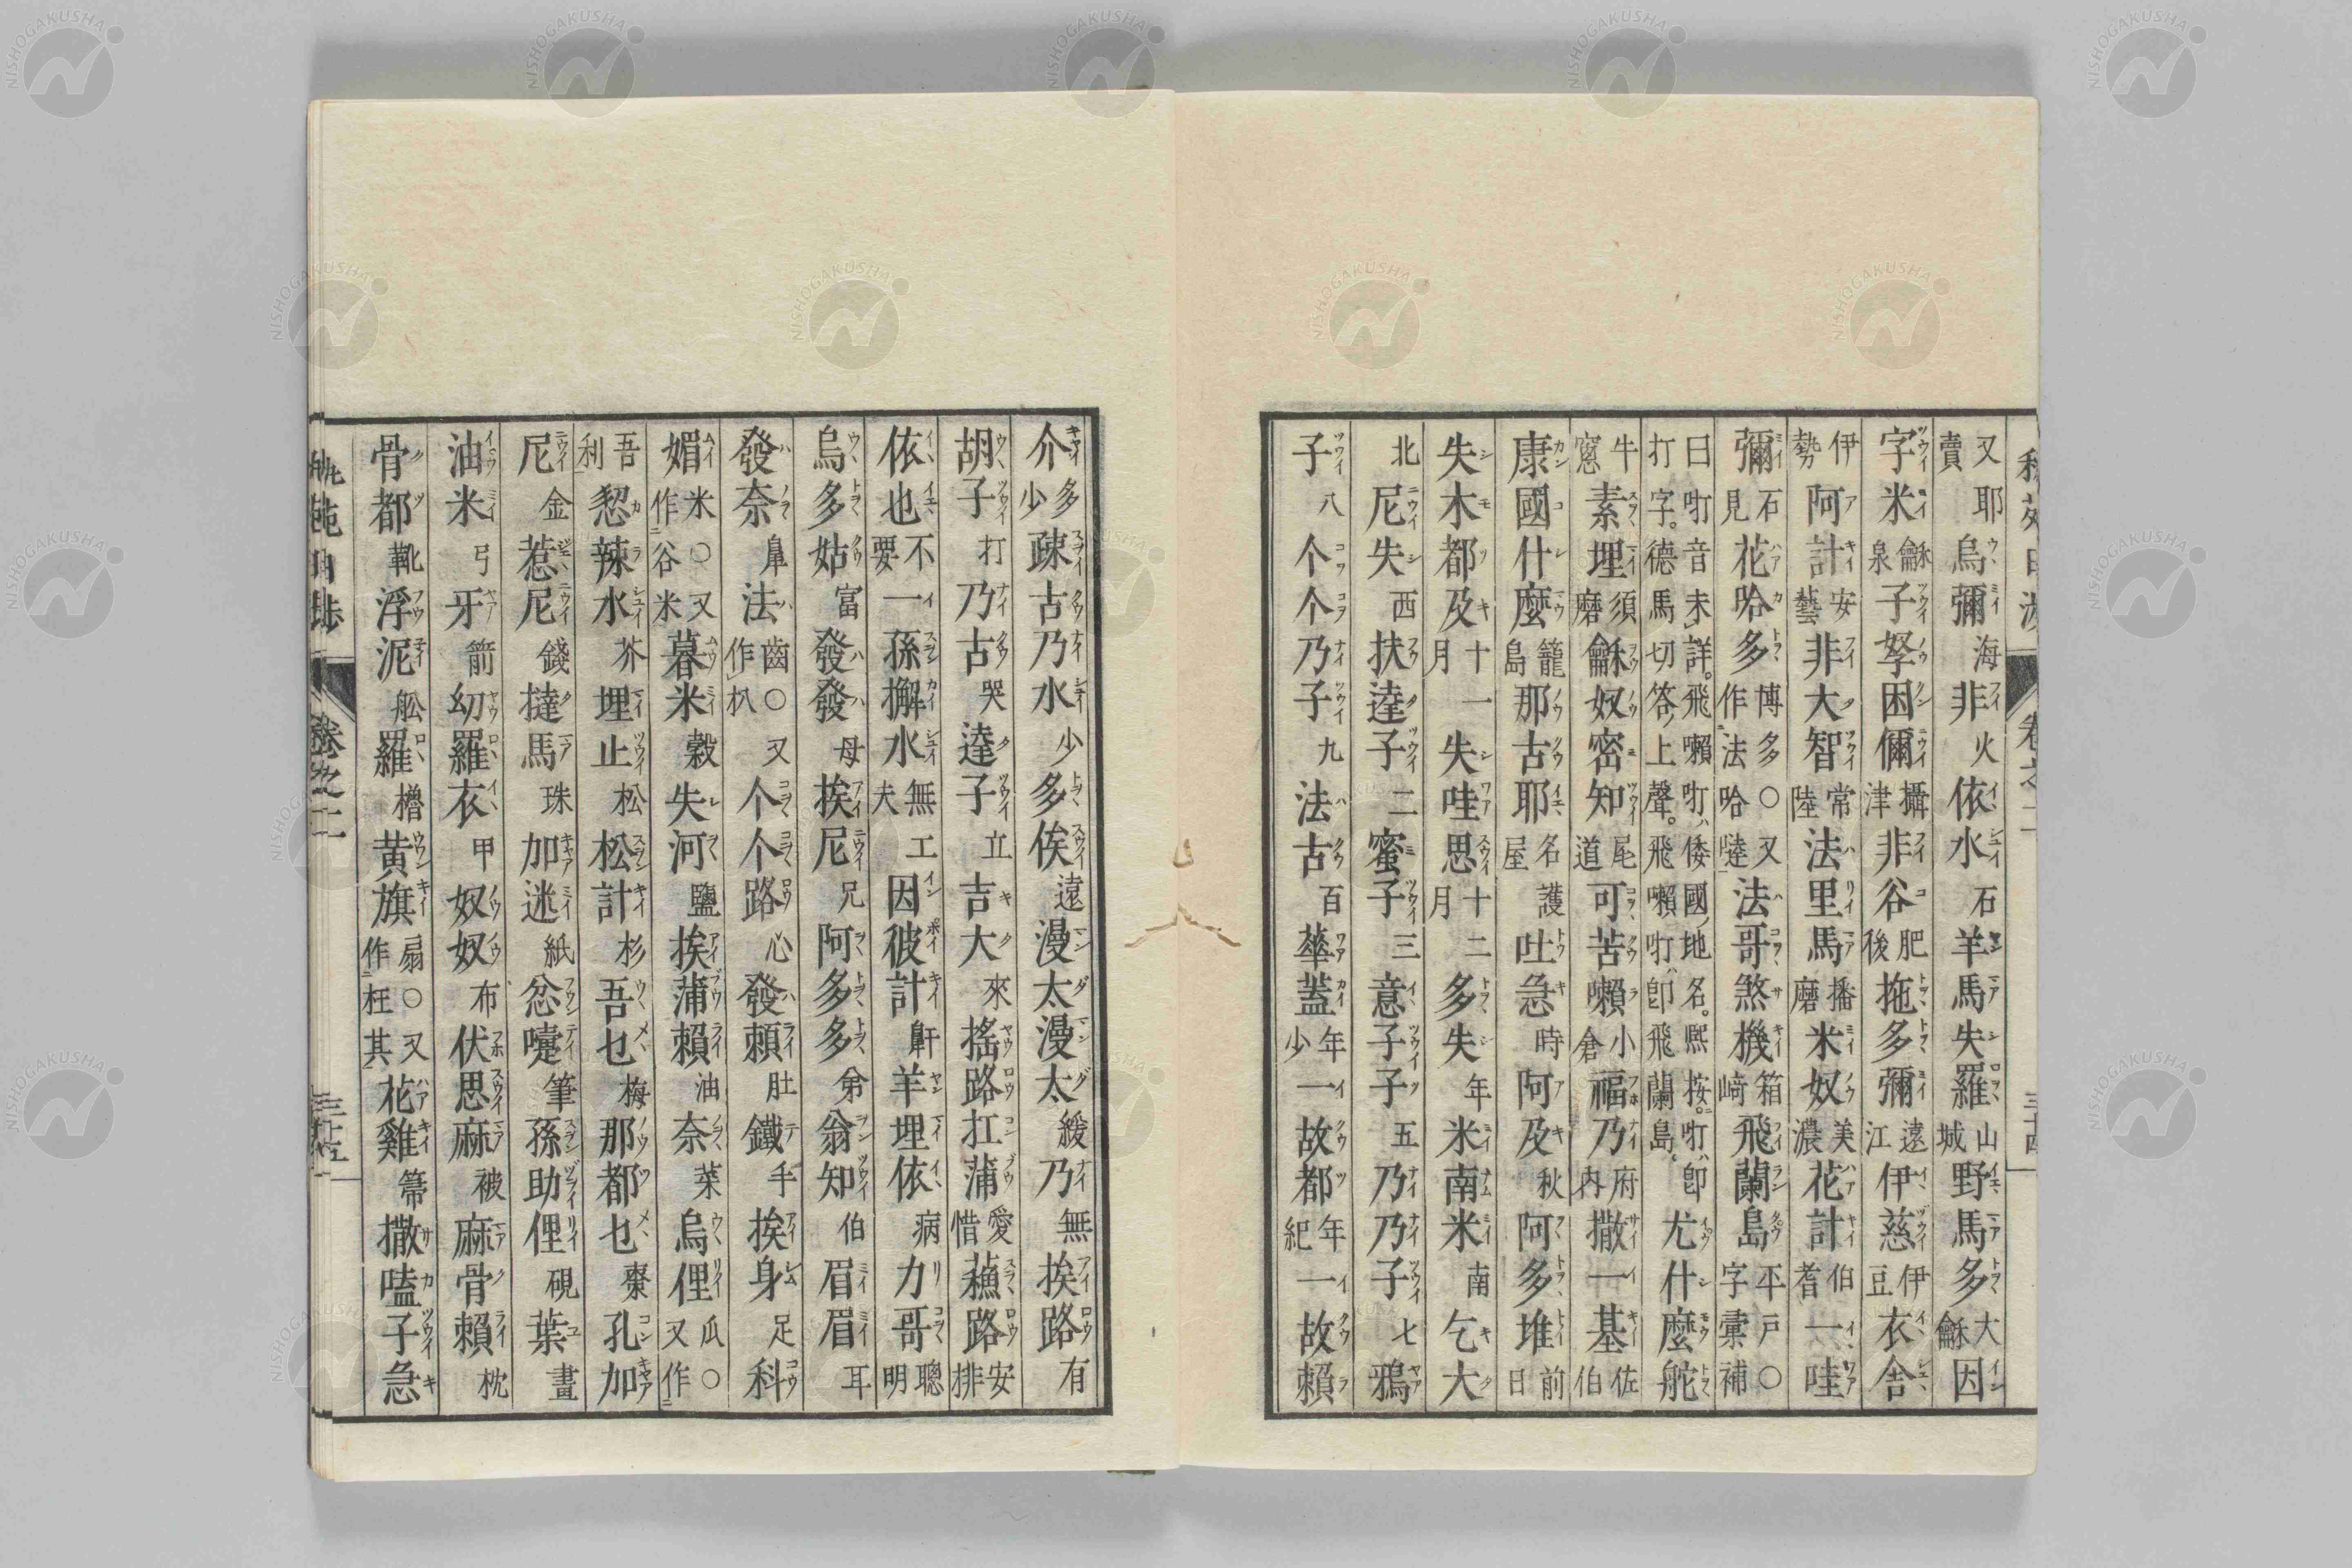 又賣 耶烏彌海非火依水石羊馬失羅山城野馬多大龢因
字米龢泉子孥因儞攝津非谷肥後拖多彌遠江伊慈伊豆衣舍
伊勢阿計安藝非大智常陸法里馬播磨米奴美濃花計伯耆一哇
彌石見花哈多博多○又作法哈噠法哥煞機箱崎飛蘭島平戸○字彙補
曰㕶音未詳飛嚹㕶倭國地名熙按㕶即打字德馬切答上聲飛嚹㕶即飛蘭島尤什麼舵
牛窓素埋須磨龢奴密知尾道可苦嚹小倉福乃府内撒一基佐伯
康國什麼籠島那古耶名屋護吐急時阿及秋阿多堆前日
失木都及十一月失哇思十二月多失年米南米南乞大
北尼失西扶達子二蜜子三意子子五乃乃子七鴉
子八个个乃子九法古百華蓋年少一故都年紀一故賴
介多少疎古乃水少多俟遠漫太漫太緩乃無挨路有
胡子打乃古哭達子立吉大來搖路扛蒲愛惜蘓路安排
依也不要一孫懈水無工夫因彼計鼾羊埋依病力哥聰明
烏多姑富發發母挨尼兄阿多多弟翁知伯眉眉耳
發奈鼻法齒○又作扒个个路心發賴肚鐵手挨身足科
媚米○又作谷米暮米穀失河鹽挨蒲賴油奈菜烏俚瓜○又作
吾利惒辣水芥埋止松松計杉吾乜梅那都乜棗孔加
尼金惹尼錢撻馬珠加迷紙忿嚏筆孫助俚硯葉畫
油米弓牙箭幼羅衣甲奴奴布伏思麻被麻骨賴枕
骨都靴浮泥舩羅櫓黃旗扇○又作枉其花雞箒撒嗑子急
卷之二